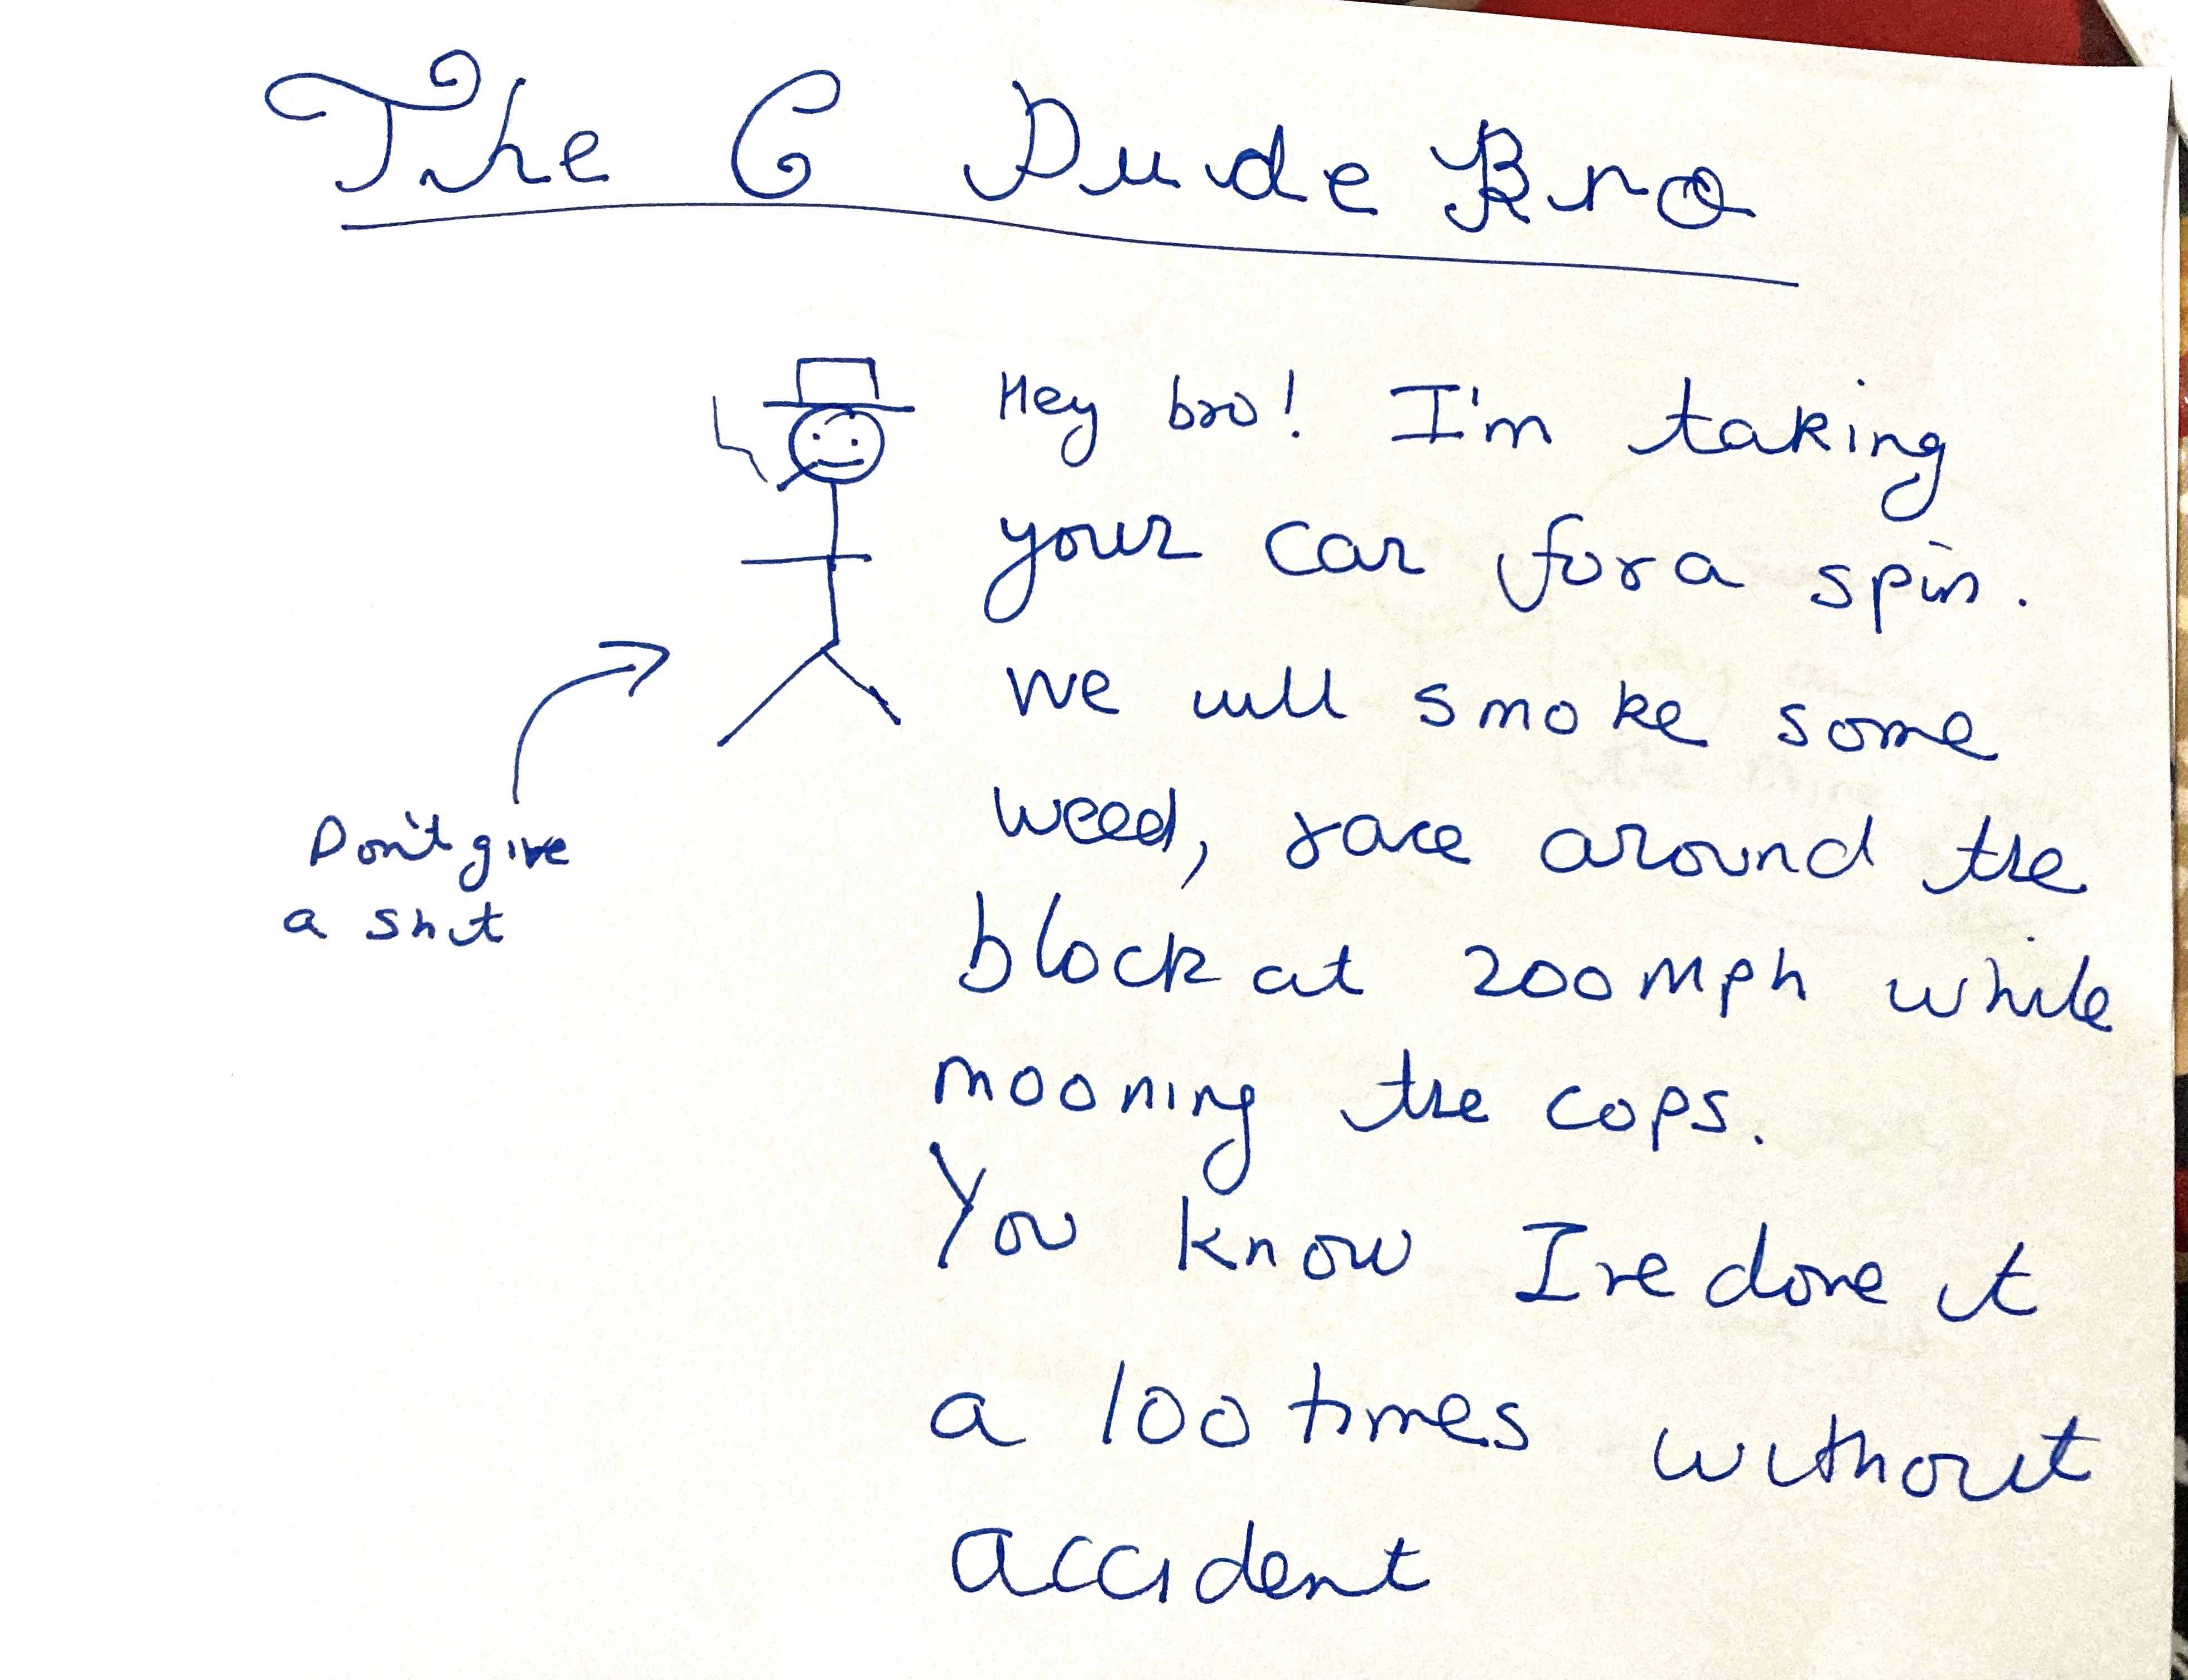 The C Dude Bro
Hey bro! I'm taking
your car for a spin.
we will smoke some
weed, race around the
block at 200 mph while
mooning the cops.
You know I've done it
a 100 times without
accident
Don't give
a shit